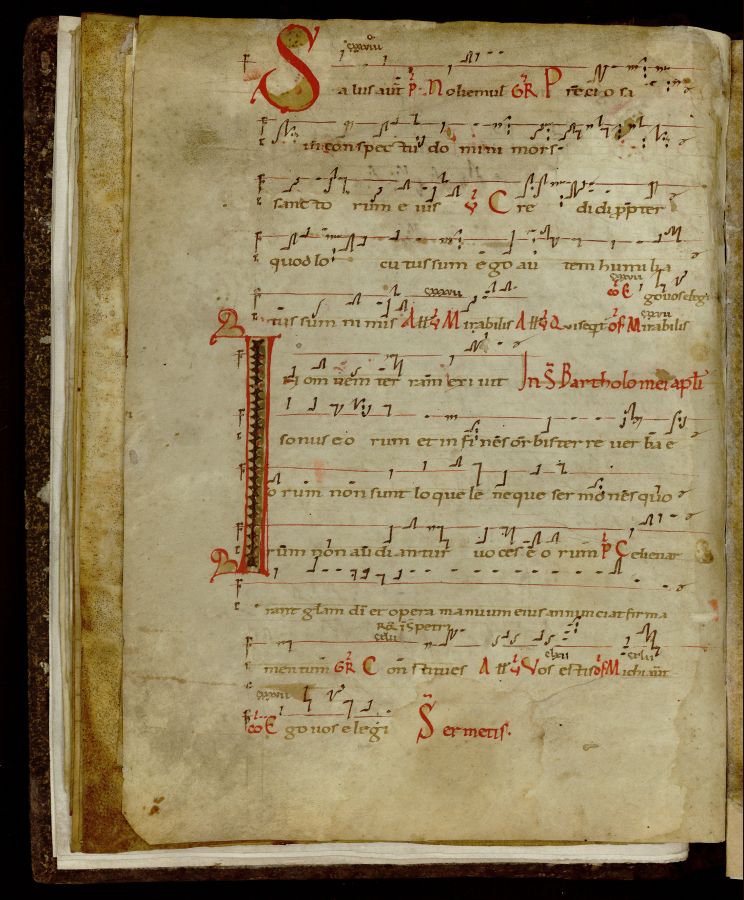 cxxxiii
Salus aūt P̄. Nolite emul GR̄ Preciosa
in conspectu domini mors
sanctorum eius ℣ Credidi ppter
quod locutus sum ego autem humilia
cxxxvii
tus sum nimis All ℣ Mirabilis All ℣ Qui seqt of Mirabilis
co Ego vos elegi
In omnem terram exivit In S. Bartholomei apli
sonus eorum et in fines orbis terre verba e
orum non sunt loquele neque sermones quo
rum non audiantur voces eorum P̄ Celi enar
rant glam di et opera manuum eius annunciat firma
R̄ i S petri
mentum GR Constitues All ℣ Vos estis of Michi aūt
co Ego vos elegi Sermetis.